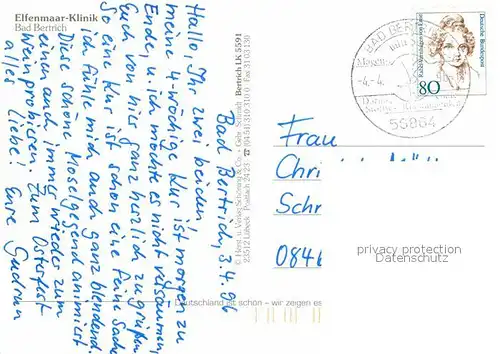 Elfenmaar-Klinik
Bad Bertrich
Bad Bertrich, 3.4.96
Hallo, Ihr zwei beiden!
Meine 4-wöchige Kur ist morgen zu
Ende, u. ich möchte es nicht versäumen,
Euch von hier ganz herzlich zu grüßen.
So eine Kur ist schon eine feine Sache,
ich fühle mich auch ganz blendend.
Diese schöne Moselgegend animiert
einen auch immer wieder zum
Weinprobieren. Zum Osterfest
alles Liebe! Eure Gudrun
Bertrich LK 5591
© Horst u. Verlag Schöning & Co. · Gebr. Schmidt
23512 Lübeck
Deutschland ist schön – wir zeigen es
BAD BERTRICH
56864
Deutsche Bundespost
80
Frau
Chri
Schr
084
privacy protection
Datenschutz